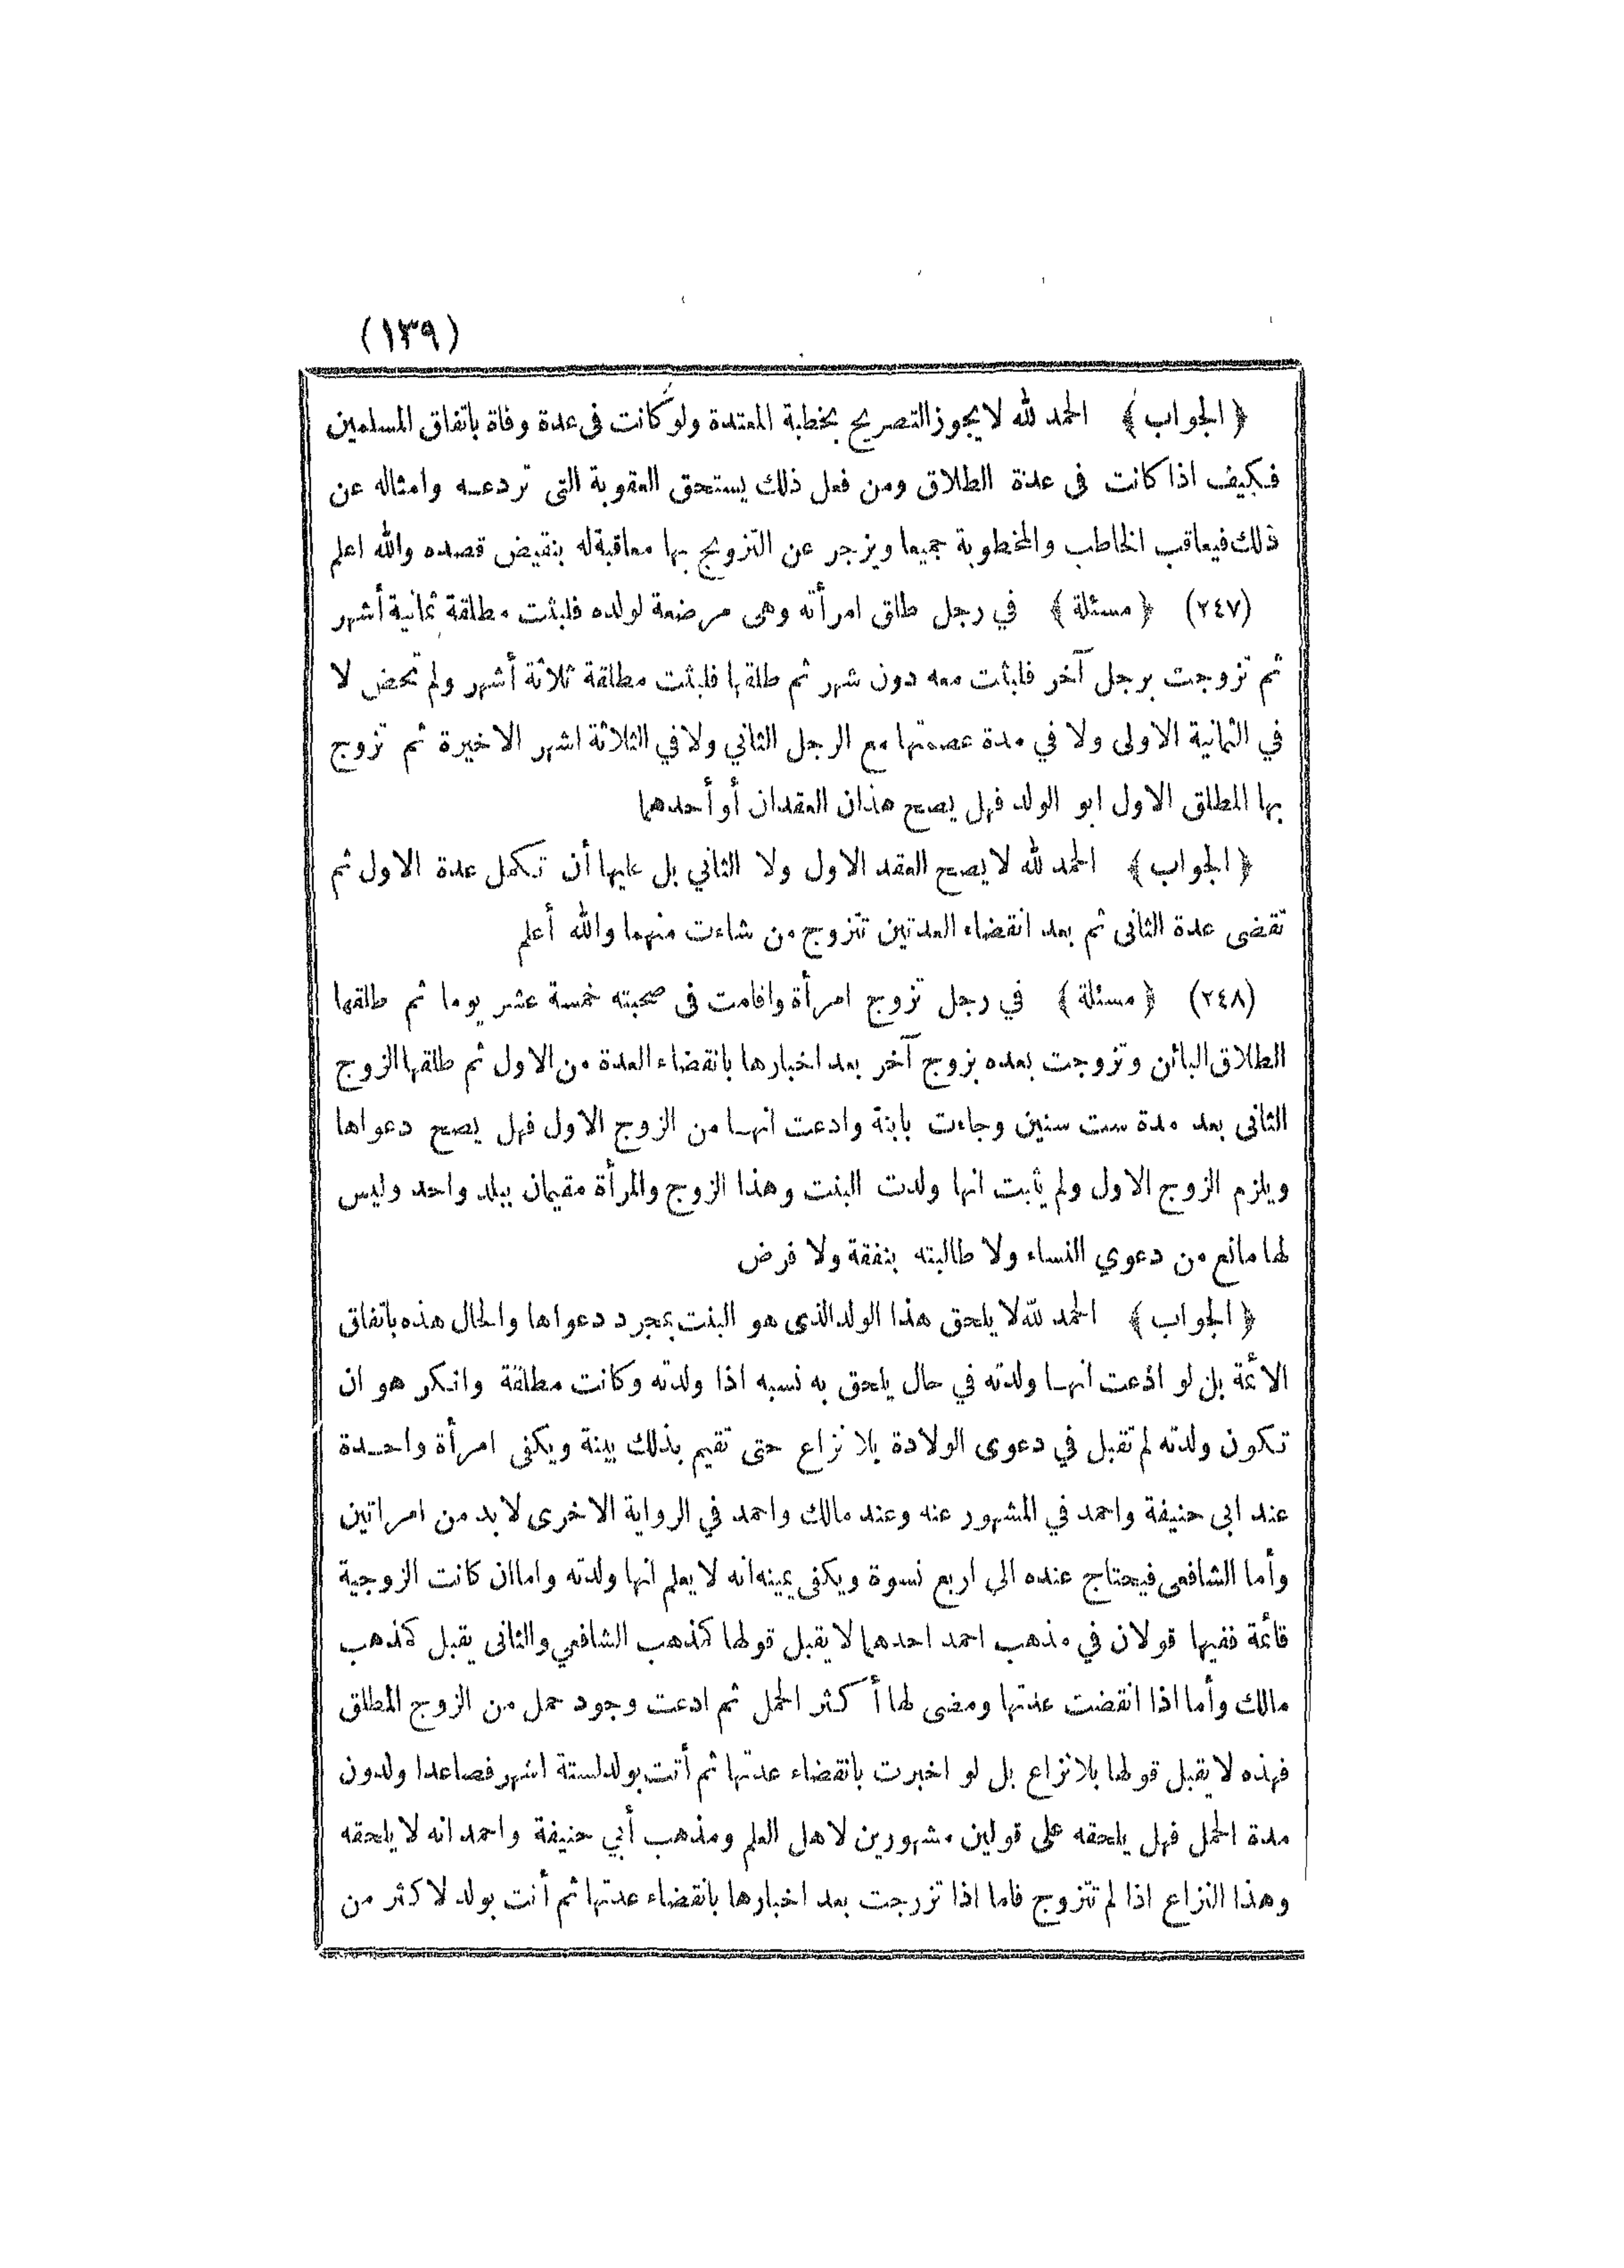 (١٣٩)
﴿ الجواب ﴾ الحمد لله لا يجوز التصريح بخطبة المعتدة ولو كانت فى عدة وفاة باتفاق المسلمين
فكيف اذا كانت فى عدة الطلاق ومن فعل ذلك يستحق العقوبة التى تردعه وامثاله عن
ذلك فيعاقب الخاطب والمخطوبة جميعا ويزجر عن التزويج بها معاقبة له بنقيض قصده والله اعلم
(٢٤٧) ﴿ مسئلة ﴾ في رجل طلق امرأته وهى مرضعة لولده فلبثت مطلقة ثمانية أشهر
ثم تزوجت برجل آخر فلبثت معه دون شهر ثم طلقها فلبثت مطلقة ثلاثة أشهر ولم تحض لا
في الثمانية الاولى ولا في مدة عصمتها مع الرجل الثاني ولا في الثلاثة اشهر الاخيرة ثم تزوج
بها المطلق الاول ابو الولد فهل يصح هذان العقدان أو أحدهما
﴿ الجواب ﴾ الحمد لله لا يصح العقد الاول ولا الثاني بل عليها أن تكمل عدة الاول ثم
تقضى عدة الثانى ثم بعد انقضاء العدتين تتزوج من شاءت منهما والله أعلم
(٢٤٨) ﴿ مسئلة ﴾ في رجل تزوج امرأة واقامت فى صحبته خمسة عشر يوما ثم طلقها
الطلاق البائن وتزوجت بعده بزوج آخر بعد اخبارها بانقضاء العدة من الاول ثم طلقها الزوج
الثانى بعد مدة ست سنين وجاءت بابنة وادعت انها من الزوج الاول فهل يصح دعواها
ويلزم الزوج الاول ولم يثبت انها ولدت البنت وهذا الزوج والمرأة مقيمان ببلد واحد وليس
لها مانع من دعوي النساء ولا طالبته بنفقة ولا فرض
﴿ الجواب ﴾ الحمد لله لا يلحق هذا الولد الذى هو البنت بمجرد دعواها والحال هذه باتفاق
الائمة بل لو ادعت انها ولدته في حال يلحق به نسبه اذا ولدته وكانت مطلقة وانكر هو ان
تكون ولدته لم تقبل في دعوى الولادة بلا نزاع حتى تقيم بذلك بينة ويكفى امرأة واحدة
عند ابى حنيفة واحمد في المشهور عنه وعند مالك واحمد في الرواية الاخرى لا بد من امراتين
وأما الشافعى فيحتاج عنده الي اربع نسوة ويكفى يمينه انه لا يعلم انها ولدته واما ان كانت الزوجية
قائمة ففيها قولان في مذهب احمد احدهما لا يقبل قولها كمذهب الشافعي والثانى يقبل كمذهب
مالك وأما اذا انقضت عدتها ومضى لها أكثر الحمل ثم ادعت وجود حمل من الزوج المطلق
فهذه لا يقبل قولها بلا نزاع بل لو اخبرت بانقضاء عدتها ثم أتت بولد لستة اشهر فصاعدا ولدون
مدة الحمل فهل يلحقه على قولين مشهورين لاهل العلم ومذهب أبي حنيفة واحمد انه لا يلحقه
وهذا النزاع اذا لم تتزوج فاما اذا تزوجت بعد اخبارها بانقضاء عدتها ثم أتت بولد لاكثر من